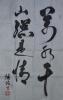 萬水千
山總是情